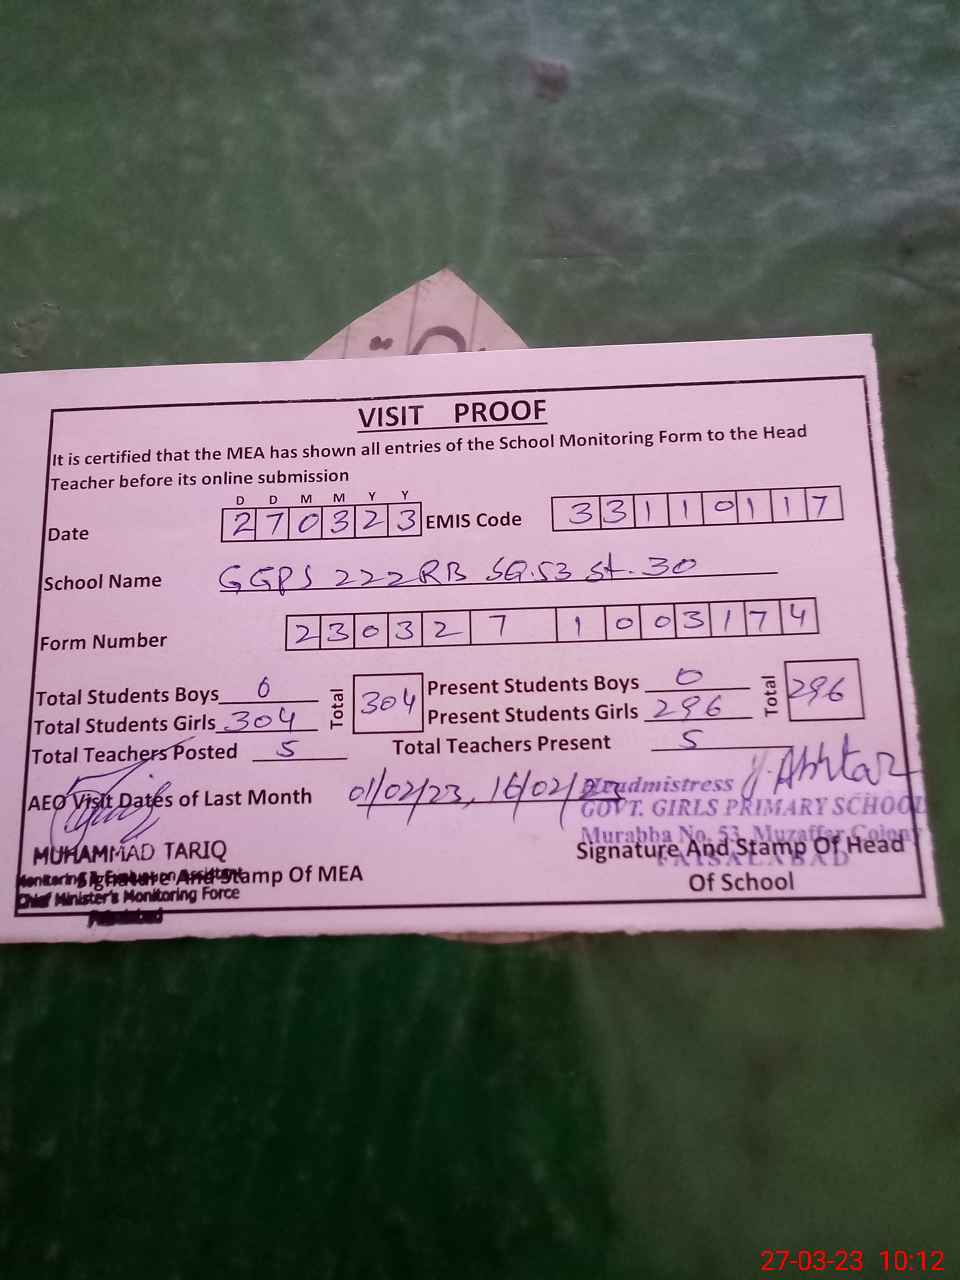 VISIT PROOF
It is certified that the MEA has shown all entries of the School Monitoring Form to the Head
Teacher before its online submission
D D M M Y Y
Date 270323 EMIS Code 33110117
School Name GGPS 222RB SQ.53 St. 30
Form Number 2303271003174
Total Students Boys 0 Total 304 Present Students Boys 0 Total 296
Total Students Girls 304 Present Students Girls 296
Total Teachers Posted 5 Total Teachers Present 5
AEO Visit Dates of Last Month 01/02/23, 16/02/23 Headmistress Y.Akhtar
GOVT. GIRLS PRIMARY SCHOOL
Murabba No. 53, Muzaffar Colony
FAISALABAD
MUHAMMAD TARIQ Signature And Stamp Of Head
Of School
Monitoring & Evaluation Assistant
Signature And Stamp Of MEA
Chief Minister's Monitoring Force
27-03-23 10:12